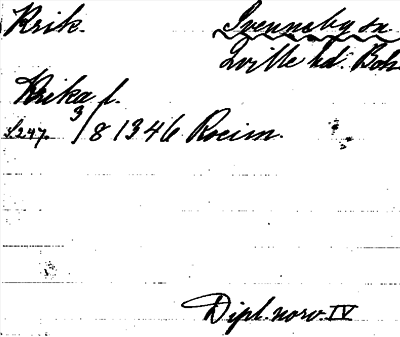 Krik. Svenneby sn
Qville hd. Boh
Krika f.
s. 247. 3/8 1346 Rocim.
Dipl. norv. IV